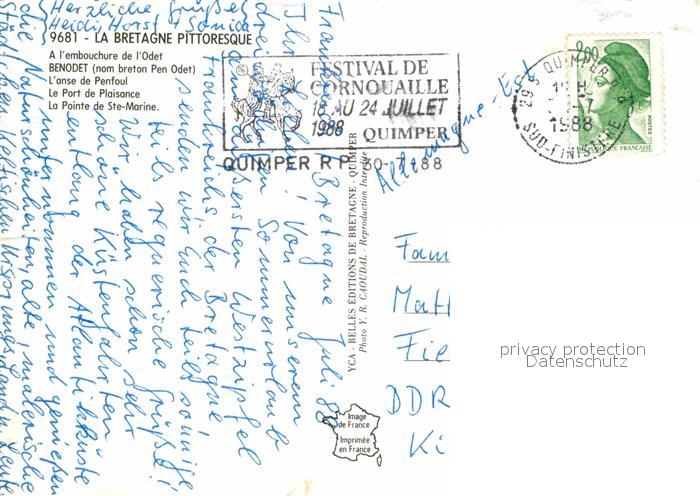 Herzliche Grüße
Heidi, Horst + Sonida
9681 - LA BRETAGNE PITTORESQUE
A l'embouchure de l'Odet
BENODET (nom breton Pen Odet)
L'anse de Penfoul
Le Port de Plaisance
La Pointe de Ste-Marine.
FESTIVAL DE
CORNOUAILLE
18 AU 24 JUILLET
1988 QUIMPER
QUIMPER R P
-7-88
29 S QUIMPER
1988
SUD-FINISTERE
2,00
POSTES
REPUBLIQUE FRANCAISE
Allemagne-Est
Frankreich / Bretagne Juli 88
Ihr Lieben! Von unserem
dreiwöchigen Sommerurlaub
am äußersten Westzipfel
Frankreichs, der Bretagne
senden wir Euch teils sonnige
teils regnerische Grüße!
Wir haben schon sehr
schöne Küstenfahrten
entlang der Atlantikküste
unternommen und genießen
die Naturschönheiten, alte, malerische
Städtchen keltischen Ursprungs
YCA - BELLES ÉDITIONS DE BRETAGNE - QUIMPER
Photo Y. R. CAOUDAL - Reproduction Interdite
Fam
Matt
Fie
DDR
Ki
Image
de France
Imprimée
en France
privacy protection
Datenschutz